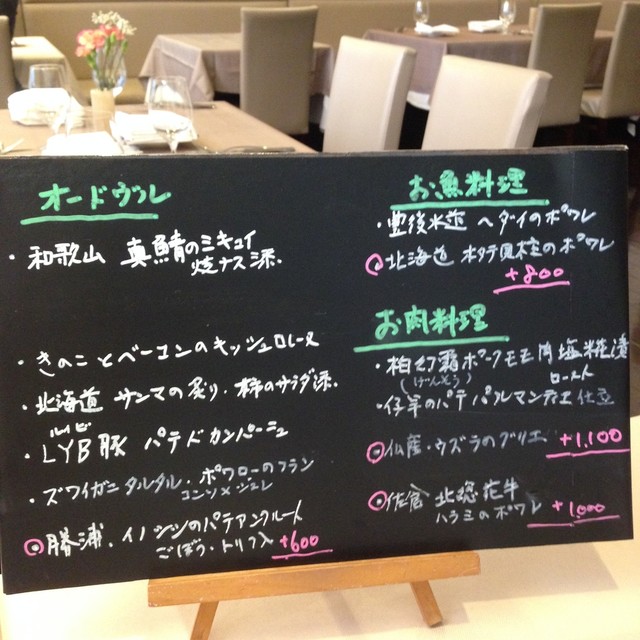 オードヴル
・和歌山 真鯖のミキュイ
焼ナス添.
・きのことベーコンのキッシュロレーヌ
・北海道 サンマの炙り・柿のサラダ添.
ルビ
・LYB豚 パテドカンパーニュ
・ズワイガニタルタル・ポワローのフラン
コンソメジュレ
勝浦・イノシシのパテアンクルート
ごぼう・トリフ入 +600
お魚料理
・豊後水道 ヘダイのポワレ
北海道 ホタテ貝柱のポワレ
+800
お肉料理
・柏幻霜ポークモモ肉塩糀漬
(げんそう) ロースト
・仔羊のパテ パルマンティエ仕立
仏産・ウズラのグリエ +1,100
佐倉 北総花牛
ハラミのポワレ +1,000